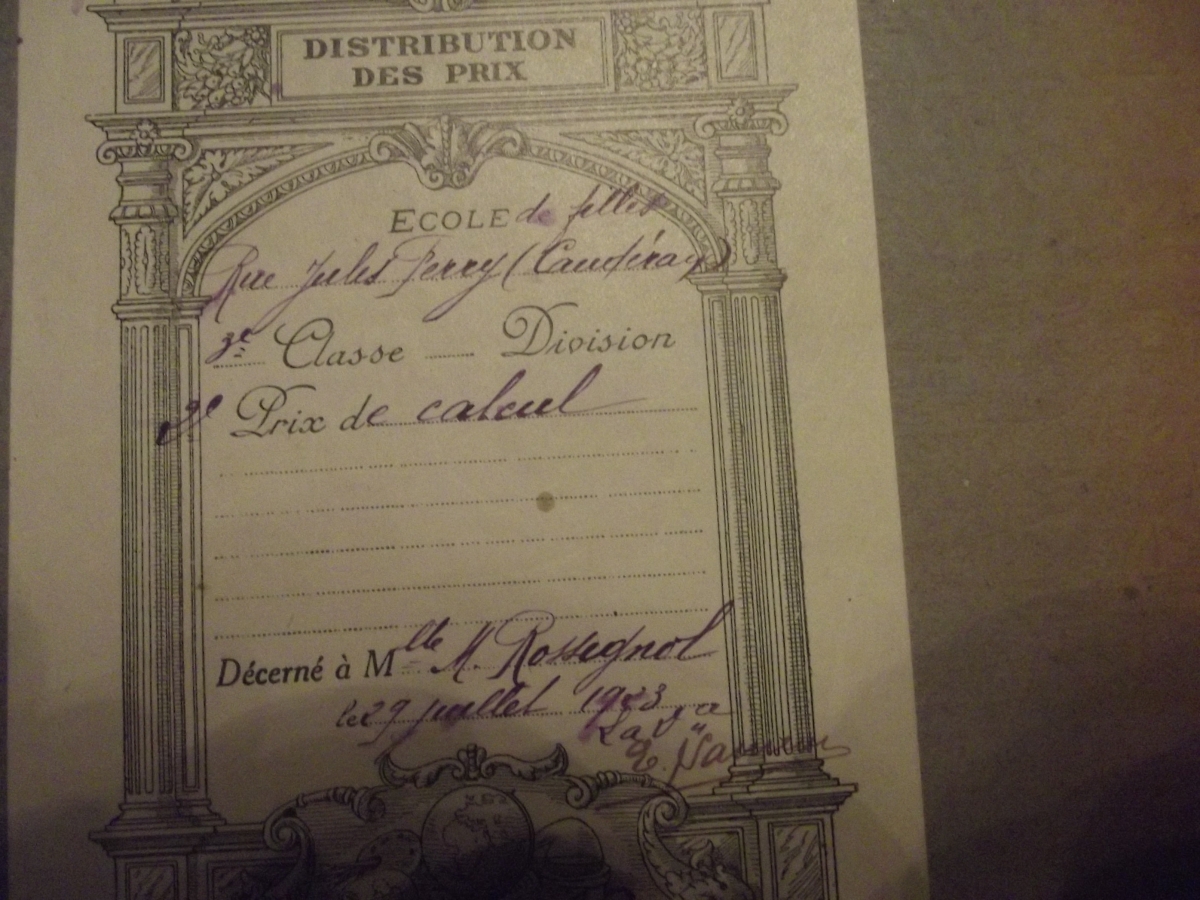 DISTRIBUTION
DES PRIX
ECOLE de filles
Rue Jules Ferry (Caudéran)
3e Classe Division
2e Prix de calcul
Décerné à Mlle M. Rossignol
le 29 juillet 1923
La D
E.